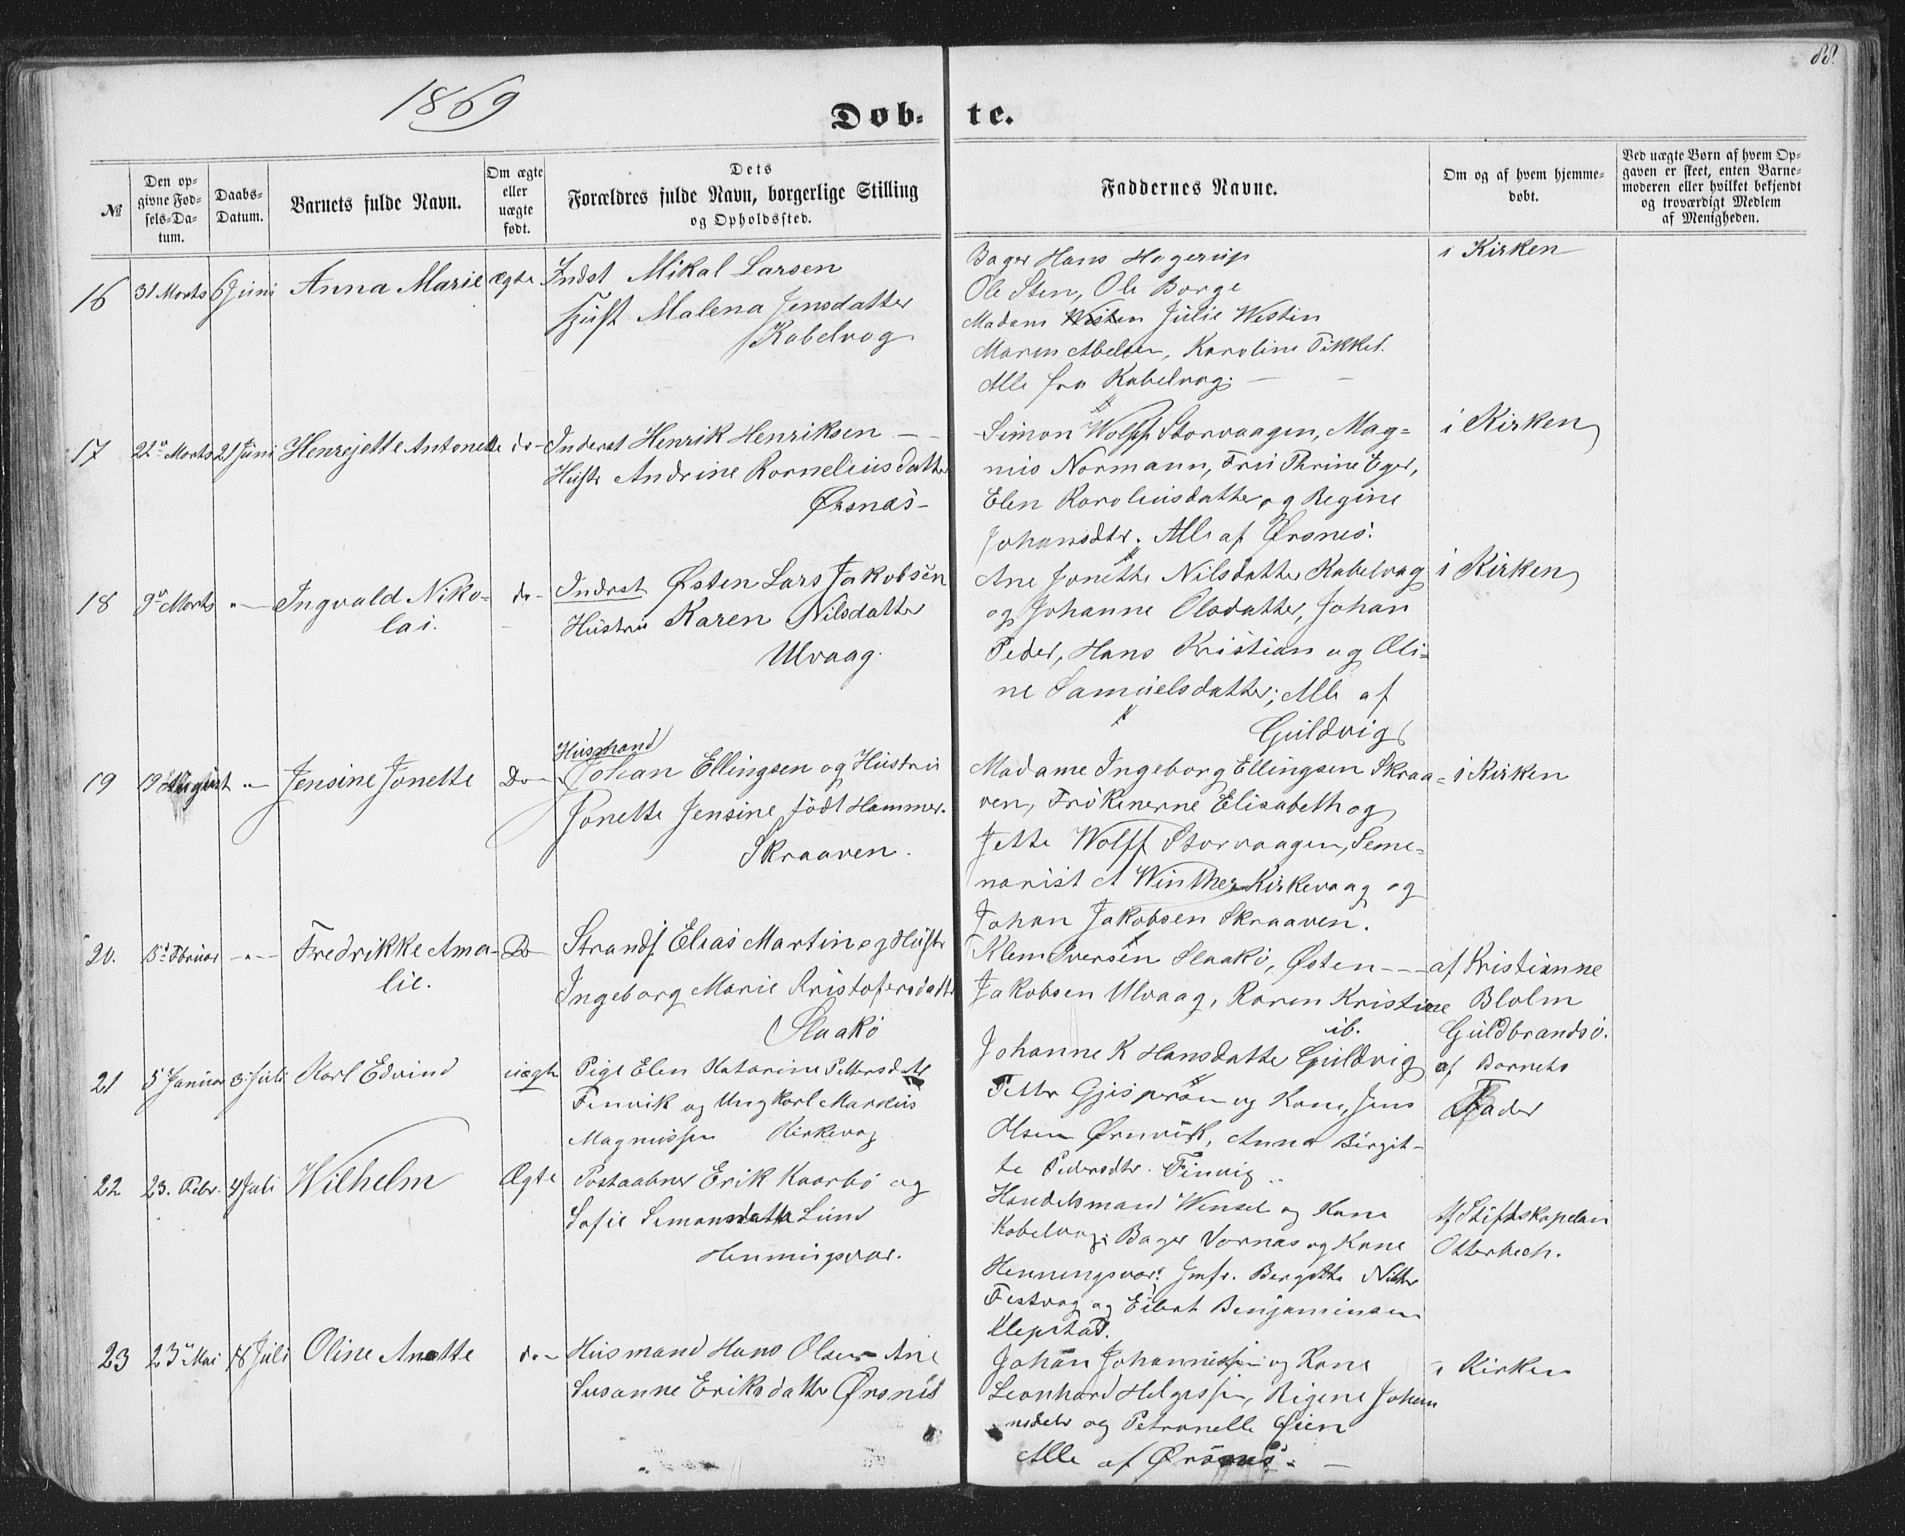 88.
1869
Døb- te.
№
Den op-
givne Fød-
sels-Da-
tum.
Daabs-
Datum.
Barnets fulde Navn.
Om ægte
eller
uægte
født.
Dets
Forældres fulde Navn, borgerlige Stilling
og Opholdssted.
Faddernes Navne.
Om og af hvem hjemme-
døbt.
Ved uægte Børn af hvem Op-
gaven er skeet, enten Barne-
moderen eller hvilket bekjendt
og troværdigt Medlem
af Menigheden.
16 31 Marts 6 Juni Anna Marie ægte
Indst Mikal Larsen
Hust Malena Jensdatter
Kabelvog
Bager Hans Hagerup
Ole Sten, Ole Borge
Madam Westen Julie Westin
Maren Abelsen, Karoline Pikkel.
Alle fra Kabelvog.
i Kirken
17 22 Marts 21 Juni Henrejette Antonette do
Inderst Henrik Henriksen
Hustr Andrine Korneliusdatter
Ørsnæs
Simon Wolff Storvaagen, Mag-
nus Normann, Fru Thrine Eger,
Elen Karoliusdatter og Regine
Johansdtr. Alle af Ørsnes.
i Kirken
18 9 Marts " Ingvald Niko-
lai. do
Inderst Østen Lars Jakobsen
Hustru Karen Nilsdatter
Ulvaag.
Ane Jonette Nilsdatter Kabelvag
og Johanne Olsdatter, Johan
Peder, Hans Kristian og Oli-
ne Samuelsdatter; Alle af
Guldvig
i Kirken
19 19 August " Jensine Jonette Do
Husmand
Johan Ellingsen og Hustru
Jonette Jensine født Hammer.
Skraaven.
Madame Ingeborg Ellingsen Skraa-
ven, Frøknerne Elisabeth og
Jette Wolff Storvaagen, Seme-
narist A Winther Kirkevaag og
Johan Jakobsen Skraaven.
i Kirken
20. 15 Februar " Fredrikke Ama-
lie. Do
Strands. Elias Martin og Hustr
Ingeborg Marie Kristofersdatter
Slaakø
Klem Iversen Slaakø, Østen
Jakobsen Ulvaag, Karen Kristine
ib.
Johanne K Hansdatter Guldvig
af Kristianne
Blolm
Guldbrandsø.
21 5 Januar 3 Juli Karl Edvind uægte
Pige Elen Katarine Pettersdatt
Finvik og Ungkarl Markus
Magnussen Kirkevog
Petter Gjispersen og Kone, Jens
Olsen Ørnvik, Anna Birgit-
te Pedersdtr. Finvig
af Barnets
Fader
22 23. Febr. 4 Juli Wilhelm Ægte
Postaabner Erik Kaarbø og
Sofie Simonsdatter Lund
Henningsvær.
Handelsmand Wensel og Kone
Kabelvog; Bager Vornæs og Kone
Henningsvær; Jmfr. Bergitte Nilter
Festvog og Eilert Benjaminsen
Klepstad.
Af Stiftskapelan
Otterbech.
23 23 Mai 18 Juli Oline Anette do
Husmand Hans Olsen Ane
Susanne Eriksdatter Ørsnes
Johan Johannissen og Kone
Leonhard Helgesen, Rigene Johan
nsdatr og Petronelle Øien
Alle af Ørsnes.
i Kirken